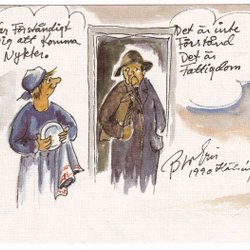 Förståndigt
ig att komma
Nykter.
Det är inte
Förstånd
Det är
Fattigdom
1990